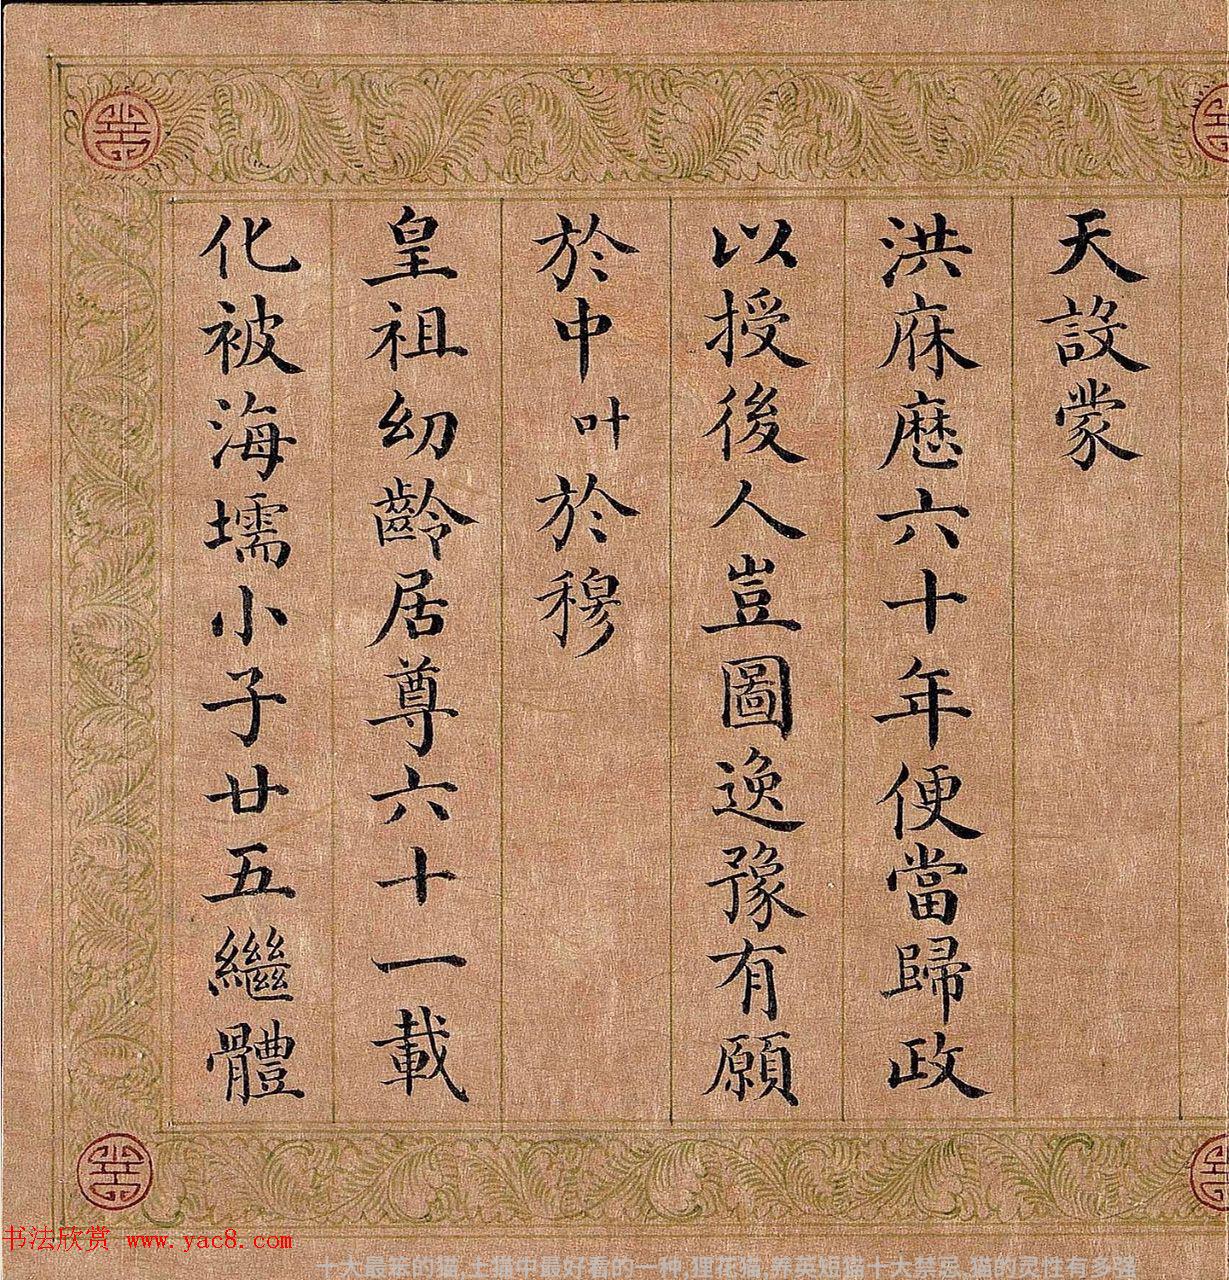 天設蒙
洪庥歷六十年便當歸政
以授後人豈圖逸豫有願
於中叶於穆
皇祖幼齡居尊六十一載
化被海壖小子廿五繼體
书法欣赏 www.yac8.com
十大最笨的猫,土猫中最好看的一种,狸花猫,养英短猫十大禁忌,猫的灵性有多强